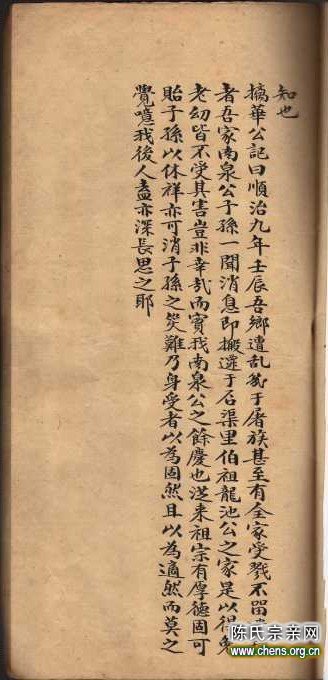 知也
摛華公記曰順治九年壬辰吾鄉遭乱幾于屠族甚至有全家受戮不留
者吾家南泉公子孫一聞消息即搬遷于石渠里伯祖龍池公之家是以得免
老幼皆不受其害豈非幸哉而實我南泉公之餘慶也從来祖宗有厚德固可
貽子孫以休祥亦可消子孫之災難乃身受者以為固然且以為適然而莫之
覺噫我後人盍亦深長思之耶
陈氏宗亲网
www.chens.org.cn